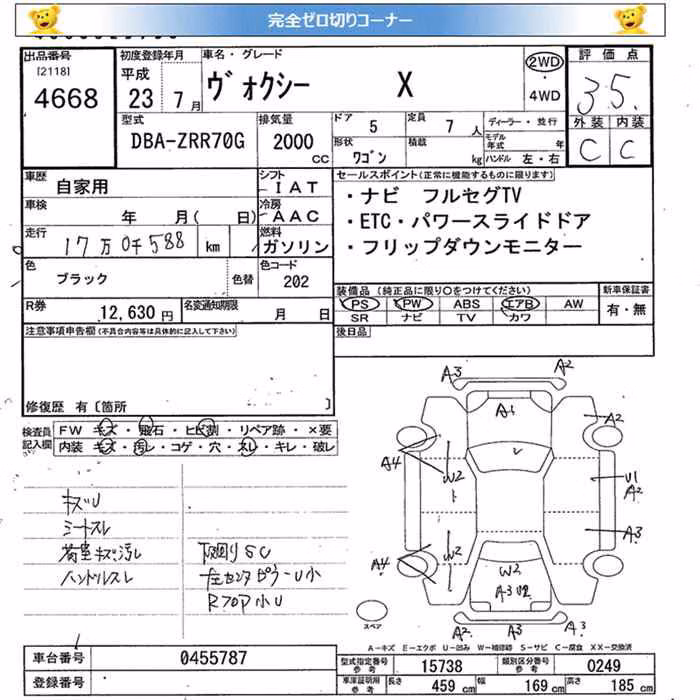 完全ゼロ切りコーナー
出品番号
[2118]
4668
初度登録年月
平成
23 7月
車名・グレード
ヴォクシー X
2WD
・
4WD
評価点
3.5
外装 内装
C C
型式
DBA-ZRR70G
排気量
2000
CC
ドア 5
定員 7人
ディーラー・並行
形状 ワゴン
積載 kg
モデル年式 年
ハンドル 左・右
車歴 自家用
シフト IAT
車検 年 月( 日)
冷房 AAC
走行 17万0千588 km
燃料 ガソリン
色 ブラック 色替
色コード 202
R券 12,630円
名変通知期限 月 日
セールスポイント(正常に機能するものに限ります)
・ナビ フルセグTV
・ETC・パワースライドドア
・フリップダウンモニター
装備品(純正品に限り○をつけてください)
PS PW ABS エアB AW
SR ナビ TV カワ
新車保証書
有・無
後日品
注意事項申告欄(不具合内容等は具体的に記入して下さい)
修復歴 有〔箇所 〕
検査員記入欄
FW キズ・飛石・ヒビ割・リペア跡・×要
内装 キズ・汚レ・コゲ・穴・スレ・キレ・破レ
キズU
シートスレ
荷室キズ汚レ
ハンドルスレ
下廻りSC
左センタピラーU小
RフロアU小
A3 A2
A1
A2
A4
W2
U1
A2
A3
W2
A4
W2
A3 U2
A2 A3 A3
スペア
A-キズ E-エクボ U-凹み W-補修跡 S-サビ C-腐食 XX-交換済
車台番号 0455787
登録番号
型式指定番号 参考 15738
類別区分番号 参考 0249
車庫証明用 参考 長さ 459cm 幅 169cm 高さ 185cm